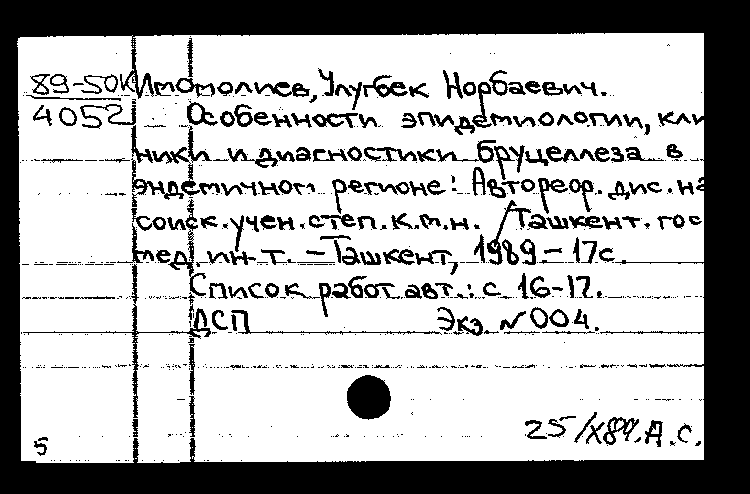 89-50К Имомолиев, Улугбек Норбаевич.
4052 Особенности эпидемиологии, кли
ники и диагностики бруцеллеза в
эндемичном регионе: Автореф. дис. на
соиск. учен. степ. к.м.н. / Ташкент. гос
мед. ин-т. – Ташкент, 1989. – 17с.
Список работ авт.: с. 16-17.
ДСП Экз. N 004.
25/X89. А.С.
5